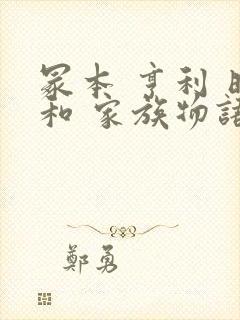 冢本 亨利 昭
和 家族物語
鄭勇